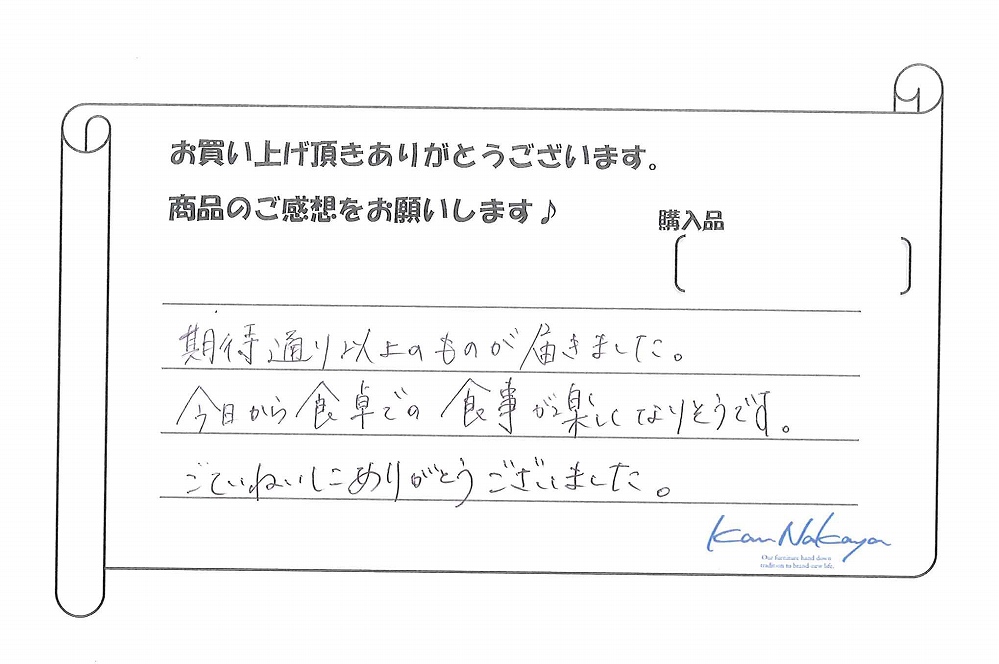 お買い上げ頂きありがとうございます。
商品のご感想をお願いします♪
購入品
期待通り以上のものが届きました。
今日から食卓での食事が楽しくなりそうです。
ごていねいにありがとうございました。
Kan Nakaya
Our furniture hand down
tradition to brand-new life.